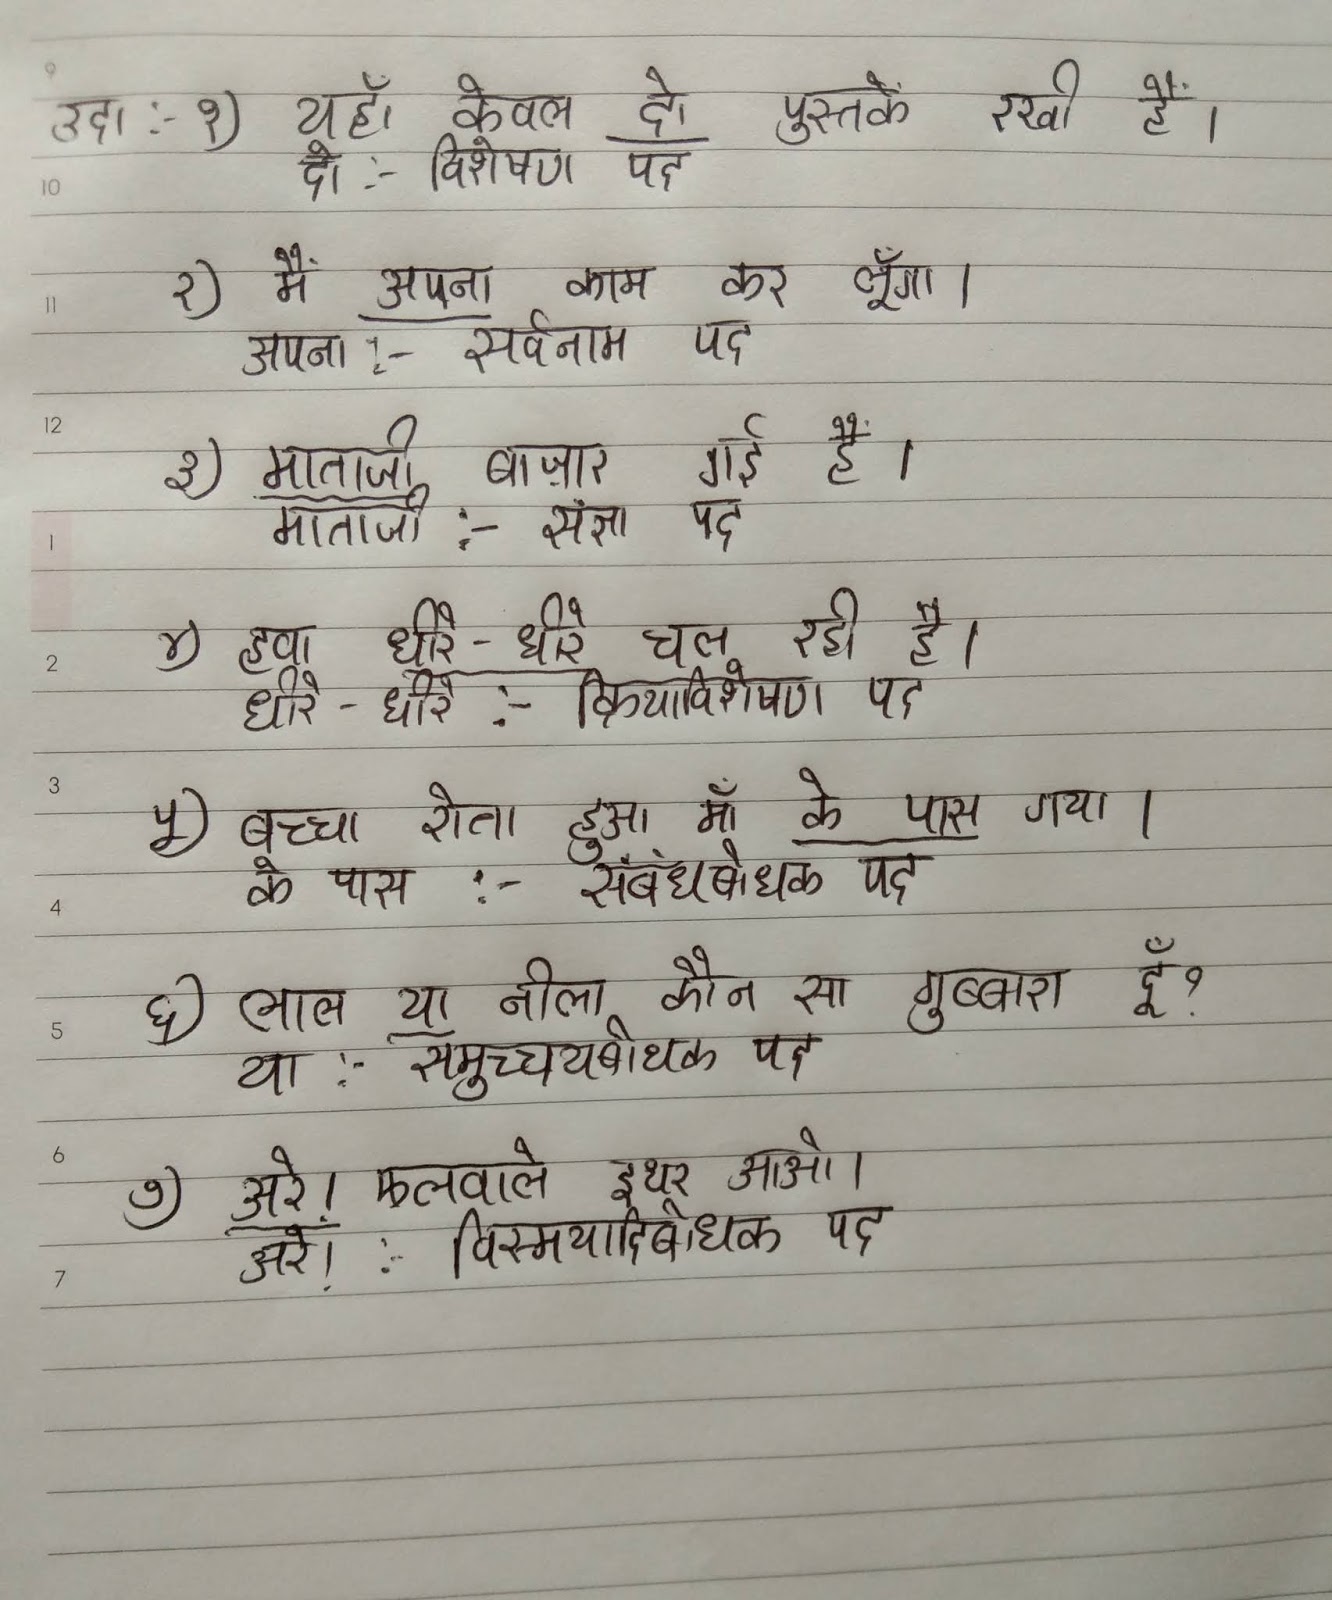 9
उदा :- १) यहाँ केवल दो पुस्तकें रखी हैं।
10
दो :- विशेषण पद
11
२) मैं अपना काम कर लूँगा।
अपना :- सर्वनाम पद
12
३) माताजी बाज़ार गई हैं।
1
माताजी :- संज्ञा पद
४) हवा धीरे - धीरे चल रही है।
2
धीरे - धीरे :- क्रियाविशेषण पद
3
५) बच्चा रोता हुआ माँ के पास गया।
के पास :- संबंधबोधक पद
4
६) लाल या नीला, कौन सा गुब्बारा दूँ?
5
या :- समुच्चयबोधक पद
6
७) अरे! फलवाले इधर आओ।
अरे! :- विस्मयादिबोधक पद
7